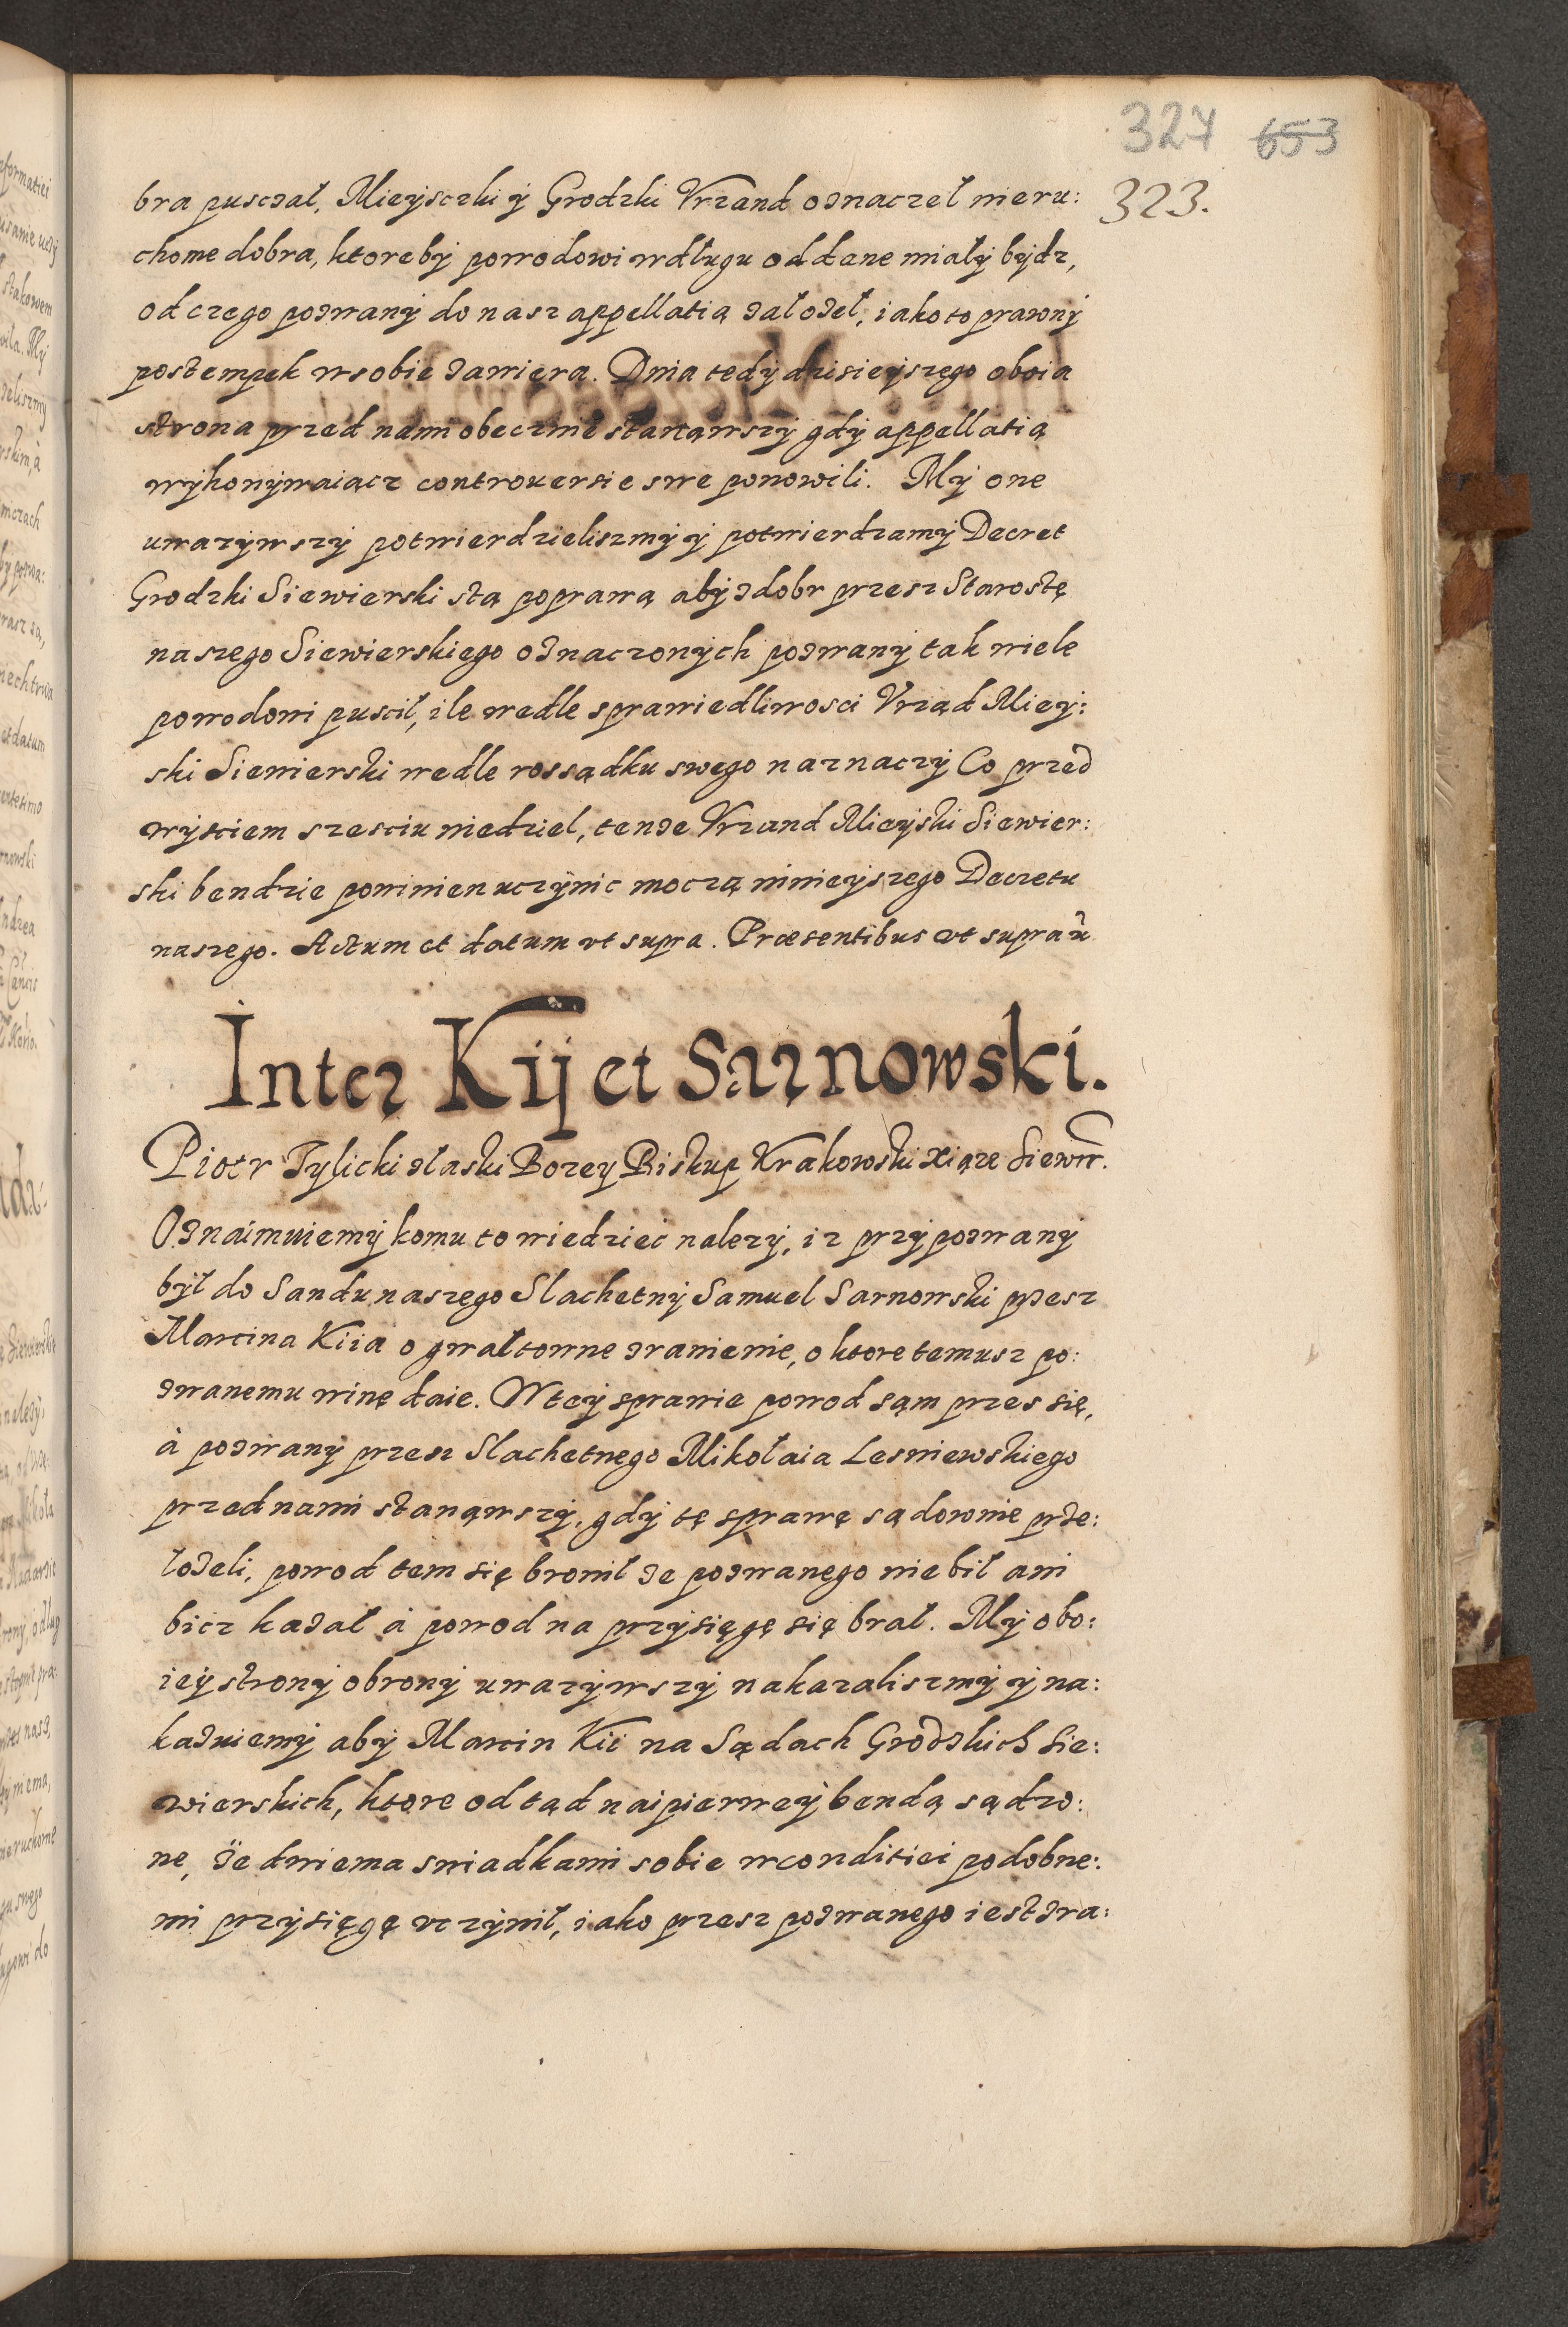 327 653
323.
bra pusczał, Mieysczki ÿ Grodzki Vrzand oznaczeł nieru:
chome dobra, ktoreby powodowi wdługu oddane miałÿ bÿdz,
odczego pozwanÿ do nasz appellatią załozeł, iako to prawnÿ
postempek wsobie zawiera. Dnia tedÿ dzisieÿszego oboia
strona przed nami obecznie stanąwszÿ gdÿ appellatią
wÿkonÿwaiącz controuersie swe ponowili. Mÿ one
uwazÿwszÿ potwierdzieliszmÿ ÿ potwierdzamÿ Decret
Grodzki Siewierski stą poprawą abÿ zdobr przesz Starostę
naszego Siewierskiego oznaczonÿch pozwanÿ tak wiele
powodowi puscił, ile wedle sprawiedliwosci Vrząd Mieÿ:
ski Siewierski wedle rossądku swego naznaczÿ Co przed
wÿsciem szesciu niedziel, tenze Vrzand Mieÿski Siewier:
ski bendzie powinien uczÿnic moczą ninieÿszego Decretu
naszego. Actum et datum vt supra. Præsentibus vt supra
Inter Kij et Sarnowski.
Piotr Tÿlicki złaski Bozeÿ Biskup Krakowski Xiąze Siewr.
Oznaimuiemÿ komu to wiedziec nalezÿ, iz przÿpozwanÿ
bÿł do Sandu naszego Slachetnÿ Samuel Sarnowski przesz
Marcina Kiia o gwałtowne zranienie, o ktore temusz po:
zwanemu winę daie. Wteÿ sprawie powod sąm przes się,
à pozwanÿ przesz Slachetnego Mikołaia Lesniewskiego
przed nami stanąwszÿ, gdÿ tę sprawę sądownie prze:
łozeli, powod tem się bronił ze pozwanego nie bił ani
bicz kazał à powod na przÿsięgę się brał. Mÿ obo:
ieÿ stronÿ obronÿ uwazÿwszÿ nakazaliszmÿ ÿ na:
kazuiemÿ abÿ Marcin Kii na Sądach Grodzkich Sie:
wierskich, ktore odtąd naipierweÿ bendą sądzo:
ne, ze dwiema swiadkami sobie wconditiei podobne:
mi przÿsięgę vczÿnił, iako przesz pozwanego iest zra: